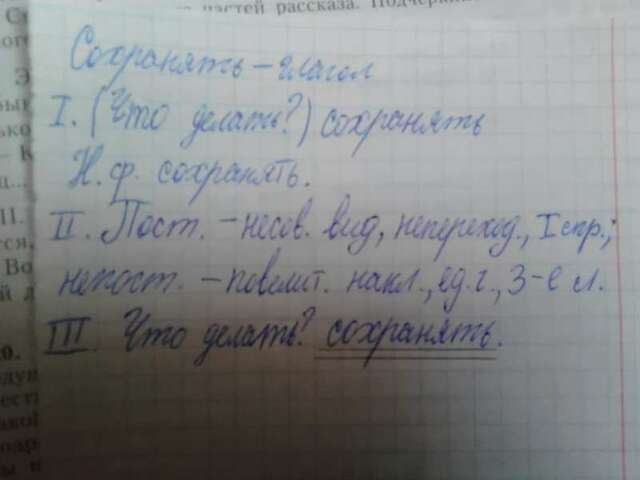 частей рассказа. Подчеркни
Сохранять – глагол
I. (Что делать?) сохранять
Н. ф. сохранять.
II. Пост. – несов. вид, непереход., I спр.;
непост. – повелит. накл., ед.ч., 3-е л.
III. Что делать? сохранять.